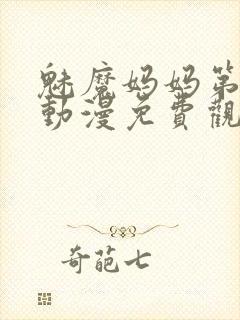 魅魔妈妈第
動漫免費觀
奇葩七